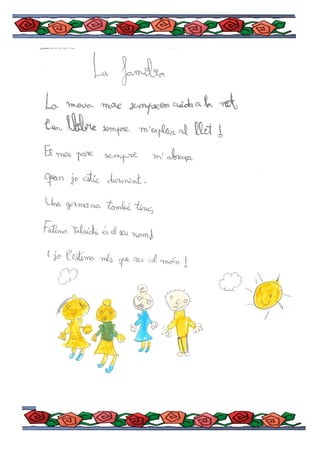 La família
La meva mare sempre em cuida a la nit
i un llibre sempre m'explica al llit!
El meu pare sempre m'abraça
quan jo estic dormint.
Una germana també tinc,
Fatima és el seu nom!
i jo l'estimo més que res al món!